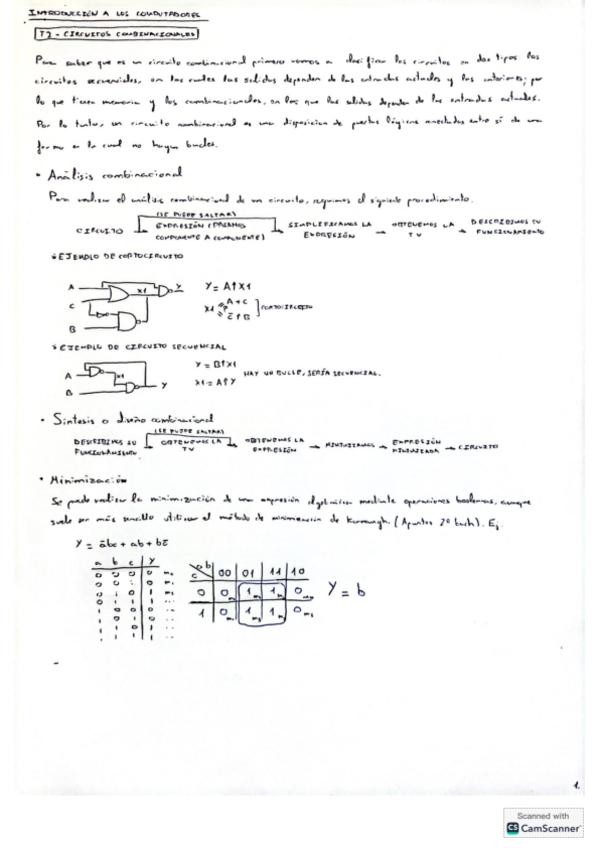 INTRODUCCIÓN A LOS COMPUTADORES
T2 - CIRCUITOS COMBINACIONALES
Para saber que es un circuito combinacional primero vamos a clasificar los circuitos en dos tipos los
circuitos secuenciales, en los cuales las salidas dependen de las entradas actuales y las anteriores; por
lo que tienen memoria y los combinacionales, en los que las salidas dependen de las entradas actuales.
Por lo tanto, un circuito combinacional es una disposicion de puertas lógicas conectadas entre sí de una
forma en la cual no hayan bucles.
• Análisis combinacional
Para realizar el análisis combinacional de un circuito, seguimos el siguiente procedimiento.
(SE PUEDE SALTAR)
CIRCUITO → EXPRESIÓN (PASAMOS COMPONENTE A COMPONENTE) → SIMPLIFICAMOS LA EXPRESIÓN → OBTENEMOS LA TV → DESCRIBIMOS SU FUNCIONAMIENTO
* EJEMPLO DE CORTOCIRCUITO
A C B X1 Y
Y = A↑X1
X1 A+C
C̄↑B
CORTOCIRCUITO
* EJEMPLO DE CIRCUITO SECUENCIAL
A B X1 Y
Y = B↑X1
X1 = A↑Y
HAY UN BUCLE, SERÍA SECUENCIAL.
• Síntesis o diseño combinacional
(SE PUEDE SALTAR)
DESCRIBIMOS SU FUNCIONAMIENTO → OBTENEMOS LA TV → OBTENEMOS LA EXPRESIÓN → MINIMIZAMOS → EXPRESIÓN MINIMIZADA → CIRCUITO
• Minimización
Se puede realizar la minimización de una expresión algebraica mediante operaciones booleanas, aunque
suele ser más sencillo utilizar el método de minimización de Karnaugh. (Apuntes 2º bach). Ej
Y = ābc + ab + bc̄
a b c Y
ab 00 01 11 10
c
0 0 1 1 0
1 0 1 1 0
Y = b
1.
Scanned with
CS CamScanner